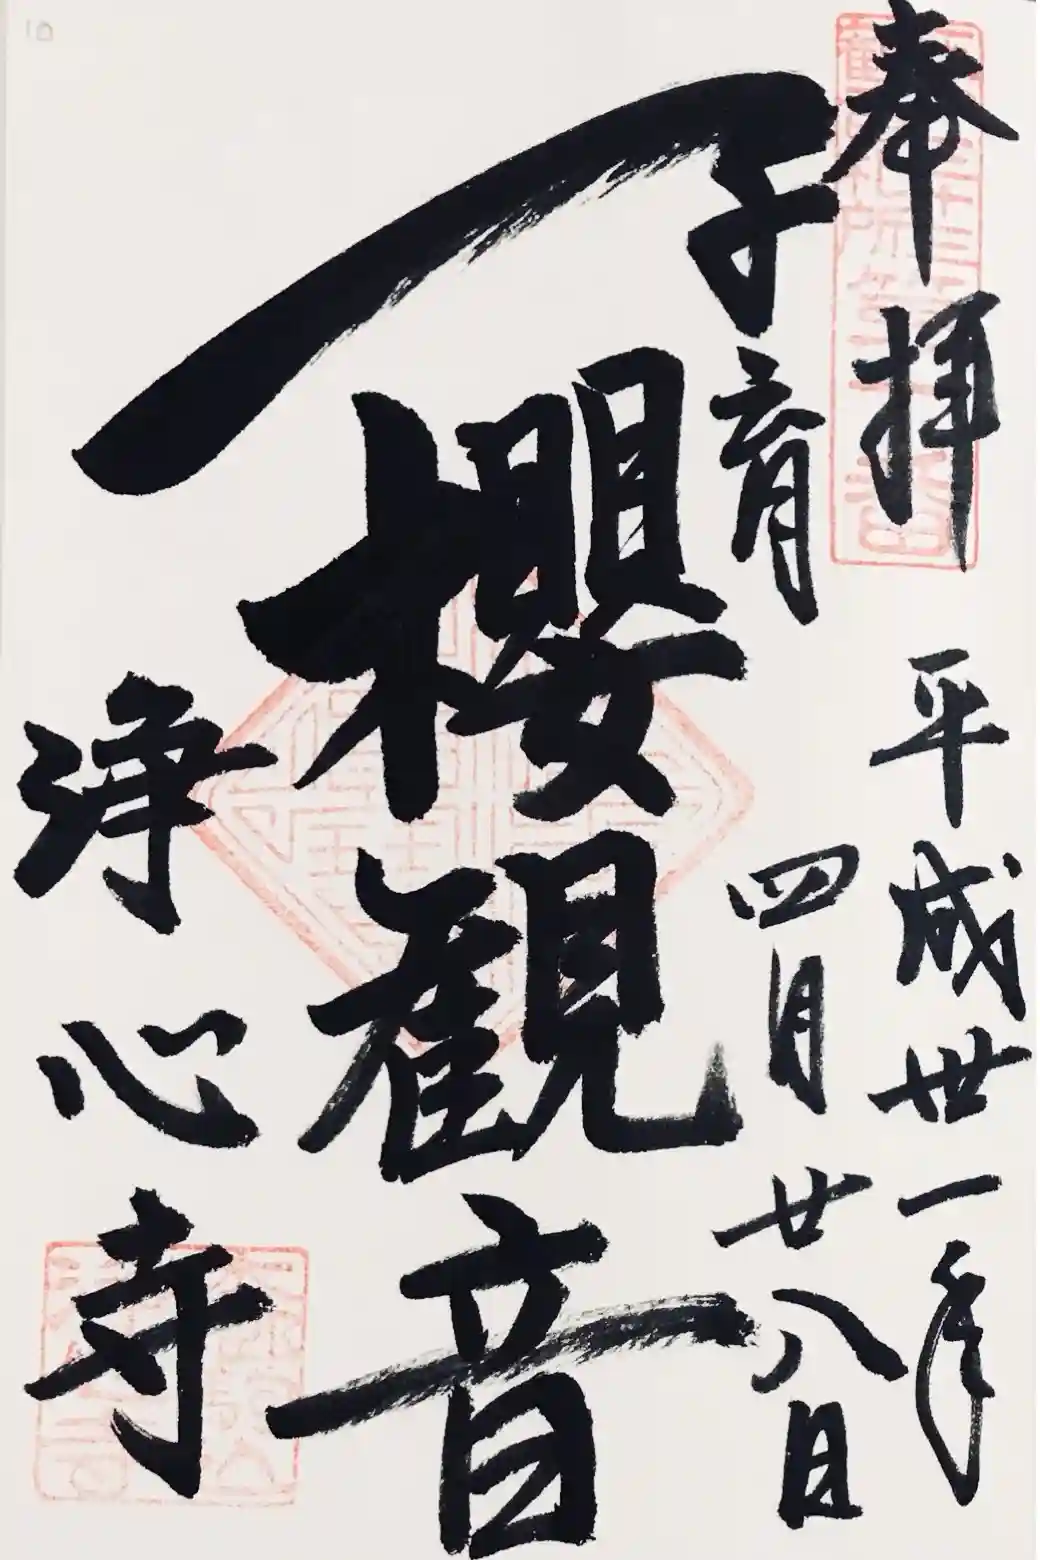 奉拝
平成丗一年
四月廿八日
子育
櫻観音
浄心寺
10